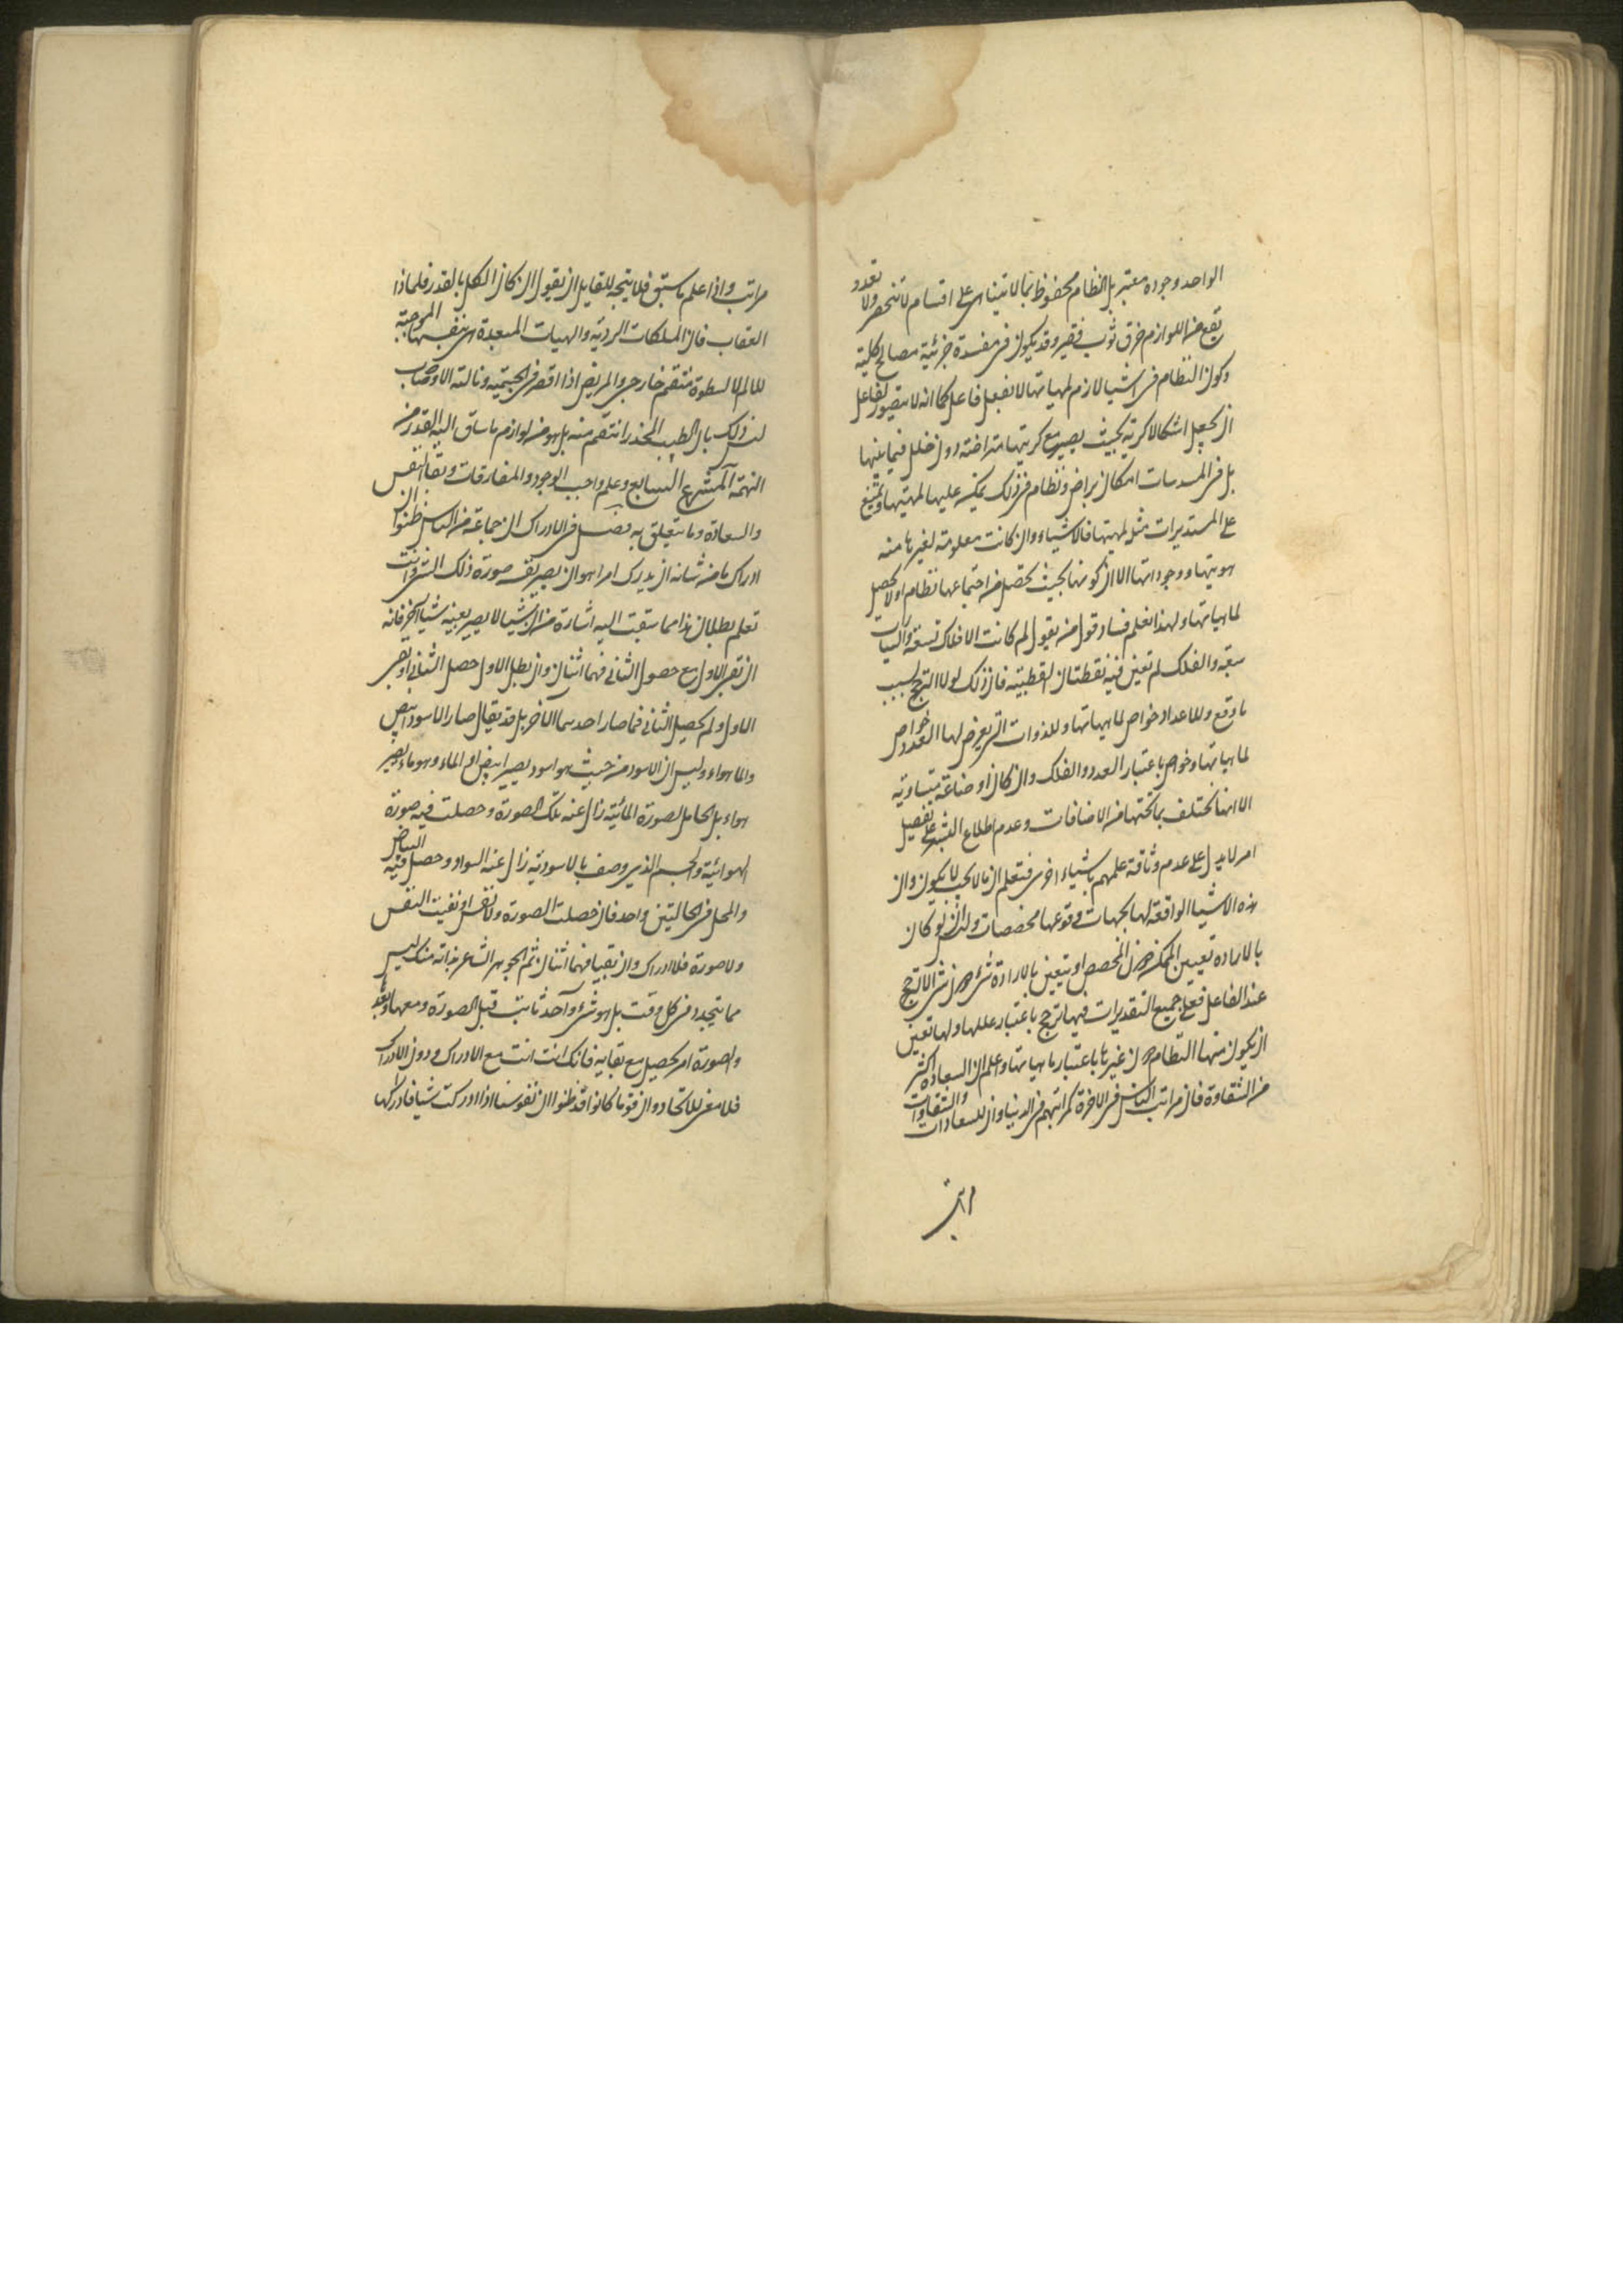 الواحد وجوده معتبر بل النظام محفوظ بما لا يتناهى على اقسام لا تنحصر ولا تعدد
يقع من اللوازم خرق ثوب فقير وقد يكون فى مفسدة جزئية مصالح كلية
وكون النظام فى اشيا لازم لمهياتها لا بفعل فاعل كما انه لا يتصور لفاعل
ان يجعل اشكالا كرية بحيث يصير مع كريتها متراصة دون خلل فيما بينها
بل فى المسدسات امكان تراص ونظام فى ذلك عليها لمهيتها ويمتنع
على المستديرات مثل لمهيتها فالاشياء وان كانت معلومة لغيرها منه
هويتها ووجوداتها الا ان كونها بحيث تحصل من اجتماعها نظام او لا يحصل
لماهياتها ولهذا نعلم فساد قول من يقول لم كانت الافلاك تسعة والسيارات
سبعة والفلك لم تعين فيه نقطتان لقطبيته فان ذلك لولا الترجح لسبب
ما وقع وللاعداد خواص لماهياتها وللذوات التى يعرض لها العدد خواص
لماهياتها وخواص باعتبار العدد والفلك وان كان اوضاعه متساوية
الا انها تختلف بما تحتها من الاضافات وعدم اطلاع البشر على تفصيل
امر لا يدل على عدم وثاقة علمهم باشياء اخرى فتعلم ان ما لا يجب لا يكون وان
هذه الاشيا الواقعة لها بجهات وقوعها مخصصات وليس لو كان
بالارادة تعيين الممكن دون المخصص او يتعين بالارادة شئ دون شئ الا لترجح
عند الفاعل فعلى جميع التقديرات فيها ترجح باعتبار عللها ولها تعين
ان يكون منها النظام دون غيرها باعتبار ماهياتها واعلم ان السعادة اكثر
من الشقاوة فان مراتب الناس فى الاخرة كمراتبهم فى الدنيا وان للسعادات والشقاوات
مراتب
مراتب واذا علم ما سبق فلا يتجه للقايل ان يقول ان كان الكل بالقدر فلماذا
العقاب فان الملكات الردية والهيات المبعدة هى بنفسها الموجبة
للالم لا لسطوة منتقم خارجى والمريض اذا اقصر فى الحمية ونالته الاوصاب
ليس ذلك بان الطبيب المحذر انتقم منه بل هو من لوازم ما ساق اليه القدر من
النهمة المشرع السابع وعلم واجب الوجود والمفارقات وبقا النفس
والسعادة وما يتعلق به فصل فى الادراك ان جماعة من الناس ظنوا ان
ادراك ما من شانه ان يدرك امرا هو ان يصير نفسه صورة ذلك الشئ وانت
تعلم بطلان هذا مما سبقت اليه اشارة من ان شيا لا يصير بعينه شيا آخر فانه
ان بقى الاول مع حصول الثانى فهما اثنان وان بطل الاول حصل الثانى او بقى
الاول ولم يحصل الثانى فما صار احدهما الآخر بل قد يقال صار الاسود ابيض
والما هواء وليس ان الاسود من حيث هو اسود يصير ابيض او الماء وهو ماء يصير
هواء بل الحامل لصورة المائية زال عنه تلك الصورة وحصلت فيه صورة
الهوائية والجسم الذى وصف بالاسودية زال عنه السواد وحصل فيه البياض
والمحل فى الحالتين واحد فان حصلت الصورة ولا نفس او بقيت النفس
ولا صورة فلا ادراك وان بقيا فهما اثنان ثم الجوهر الشاعر بذاته منك ليس
مما يتجدد فى كل وقت بل هو شئ واحد ثابت قبل الصورة ومعها وبعدها
والصورة امر يحصل مع بقايه فانك انت انت مع الادراك ودون الادراك
فلا معنى للاتحاد وان قوما كانوا قد ظنوا ان نفوسنا اذا ادركت شيا فادراكها